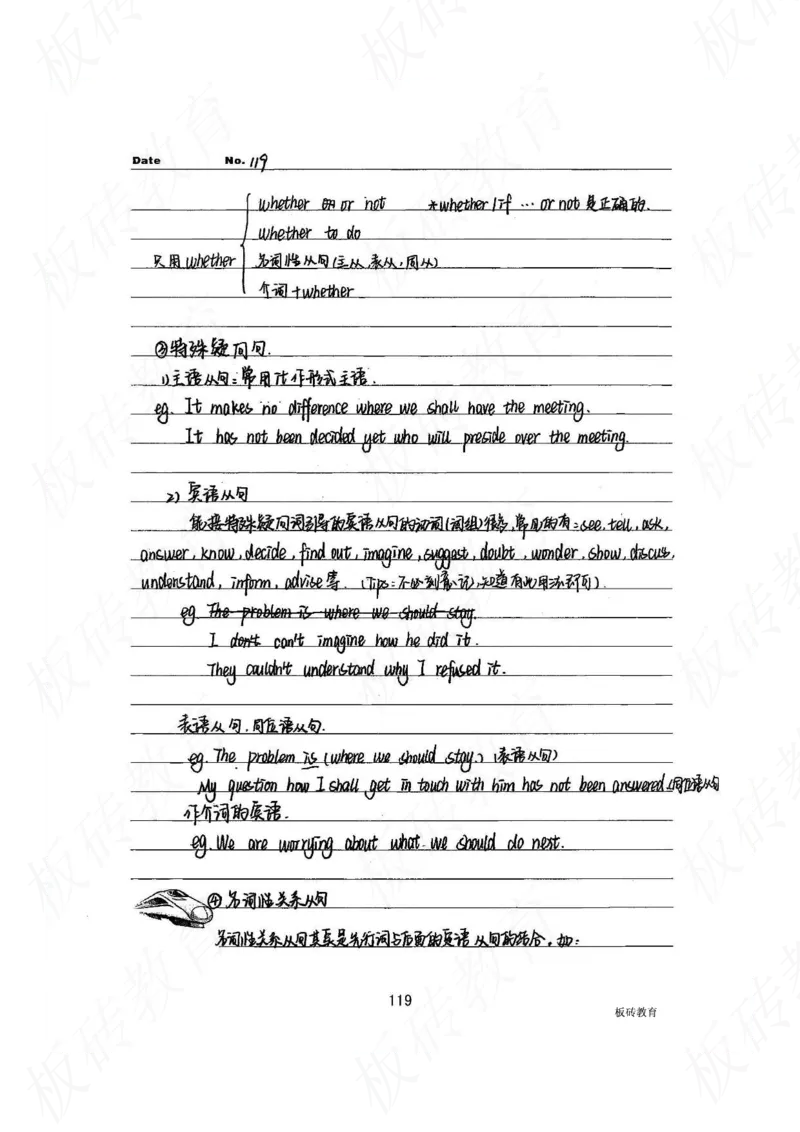 Date No. 119
whether 或 or not *whether/if … or not 是正确的.
whether to do
只用 whether 名词性从句(主从,表从,同从)
介词+whether
③特殊疑问句.
1)主语从句:常用it作形式主语.
eg. It makes no difference where we shall have the meeting.
It has not been decided yet who will preside over the meeting.
2) 宾语从句
能接特殊疑问词引导的宾语从句的动词(词组)很多,常见的有:see, tell, ask,
answer, know, decide, find out, imagine, suggest, doubt, wonder, show, discuss,
understand, inform, advise等. (Tips:不必刻意记,知道有此用法即可).
eg. The problem is where we should stay.
I don't can't imagine how he did it.
They couldn't understand why I refused it.
表语从句,同位语从句.
eg. The problem is (where we should stay.) (表语从句)
My question how I shall get in touch with him has not been answered.(同位语从句
作介词的宾语.
eg. We are worrying about what we should do nest.
④名词性关系从句
名词性关系从句其实是先行词与后面的定语从句的结合,如:
119
板砖教育